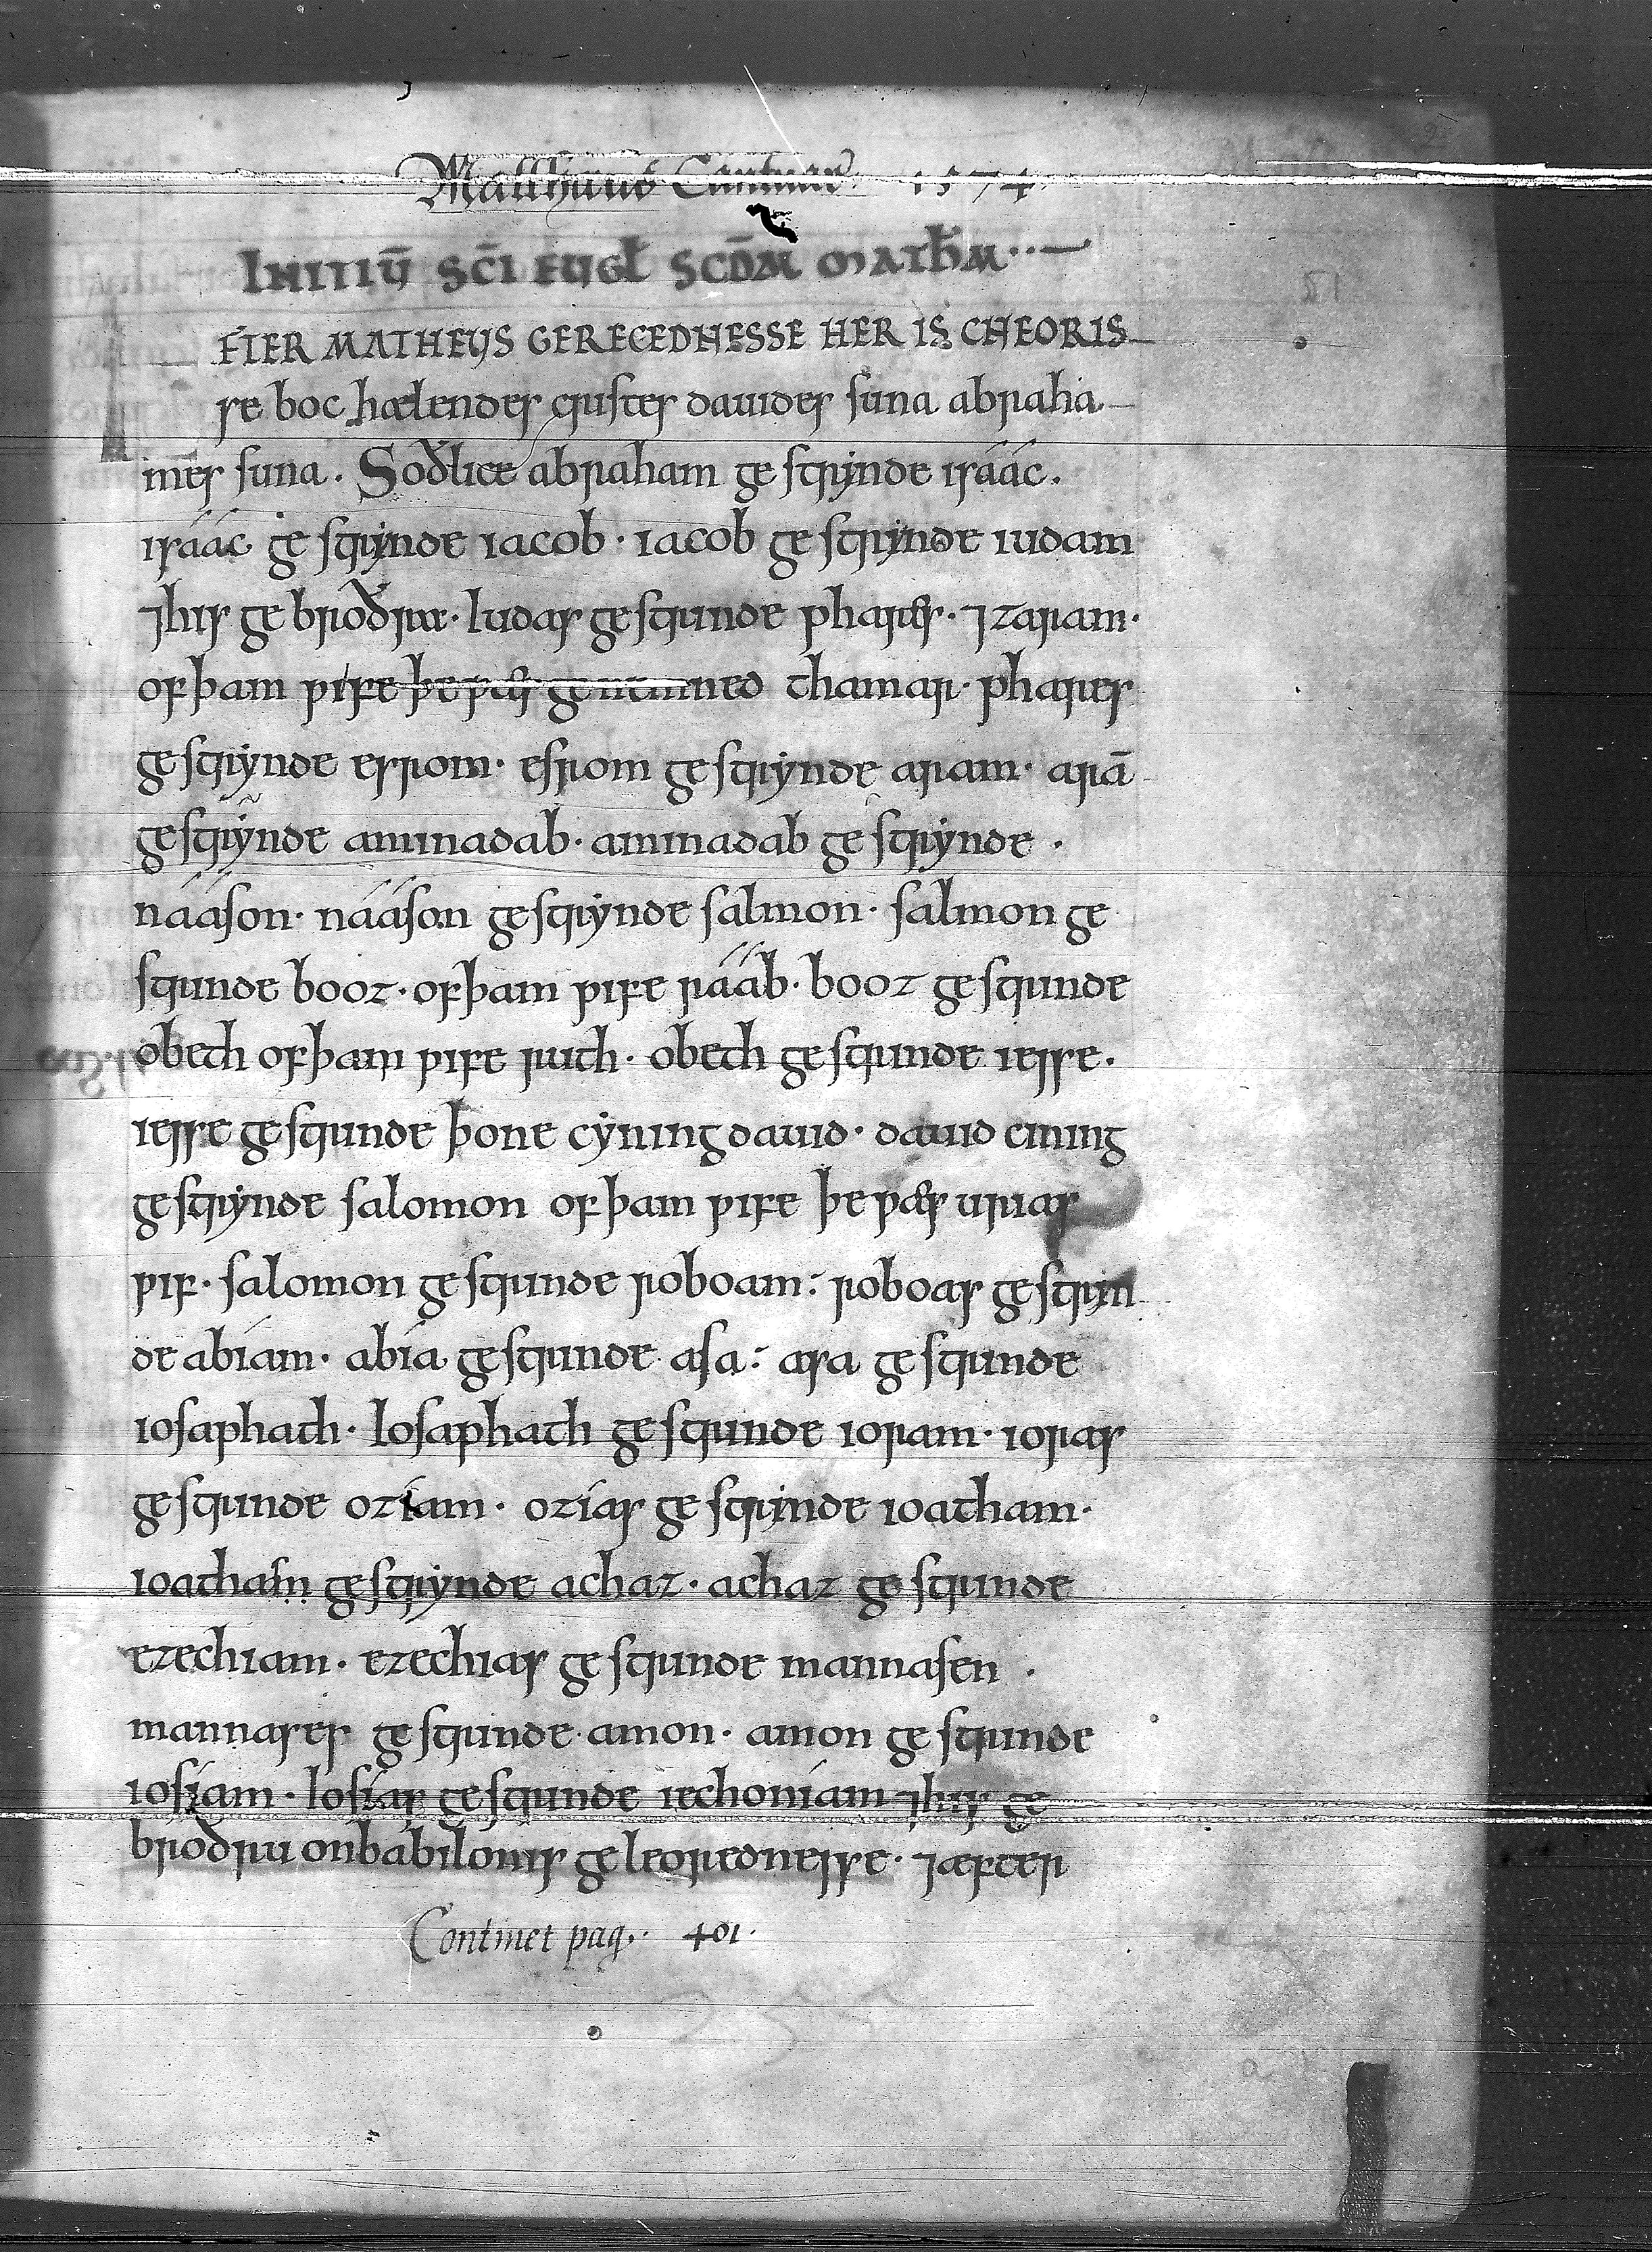 Matthaeus Cantuar. 1574.
INITIŪ SC̄I EUGL SCD̄M MATHM
ÆFTER MATHEUS GERECEDNESSE HER IS CNEORIS
se boc hælendes cristes dauides suna abraha
mes suna. Soðlice abraham ge strynde isáác.
isáác ge strynde iacob. iacob ge strynde iudam
⁊ his ge broðræ. Iudas gestrinde phares. ⁊ zaram.
of þam ƿife þe ƿæs genemned thamar. phares
gestrynde esrom. esrom ge strynde aram. arā
gestrynde aminadab. aminadab ge strynde.
náásson. náásson gestrynde salmon. salmon ge
strinde booz. of þam ƿife rááb. booz gestrinde
obeth of þam ƿife ruth. obeth gestrinde iesse.
iesse gestrinde þone cyning dauid. dauid cining
gestrynde salomon of þam ƿife þe ƿæs urias
ƿif. salomon gestrinde roboam. roboas gestryn
de abíam. abía gestrinde asa. asa gestrinde
iosaphath. Iosaphath gestrinde ioram. ioras
gestrinde ozíam. ozías gestrynde ioatham.
ioatham gestrynde achaz. achaz gestrinde
ezechiam. ezechias gestrinde mannasen.
mannases gestrinde amon. amon gestrinde
iosíam. Iosías gestrinde iechoníam ⁊ his ge
broðru on babilonis geleorednesse. ⁊ æfter
Continet pag. 401.